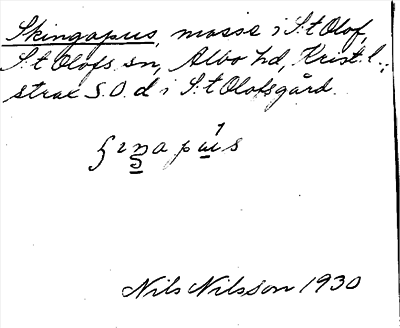 Skingapus, mosse i S:t Olof,
S:t Olofs sn, Albo hd, Krist. l.;
strax S.O. d i S:t Olofsgård.
Nils Nilsson 1930